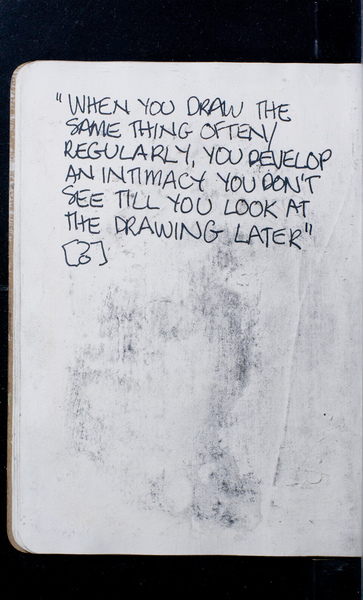 "WHEN YOU DRAW THE
SAME THING OFTEN/
REGULARLY, YOU DEVELOP
AN INTIMACY YOU DON'T
SEE TILL YOU LOOK AT
THE DRAWING LATER"